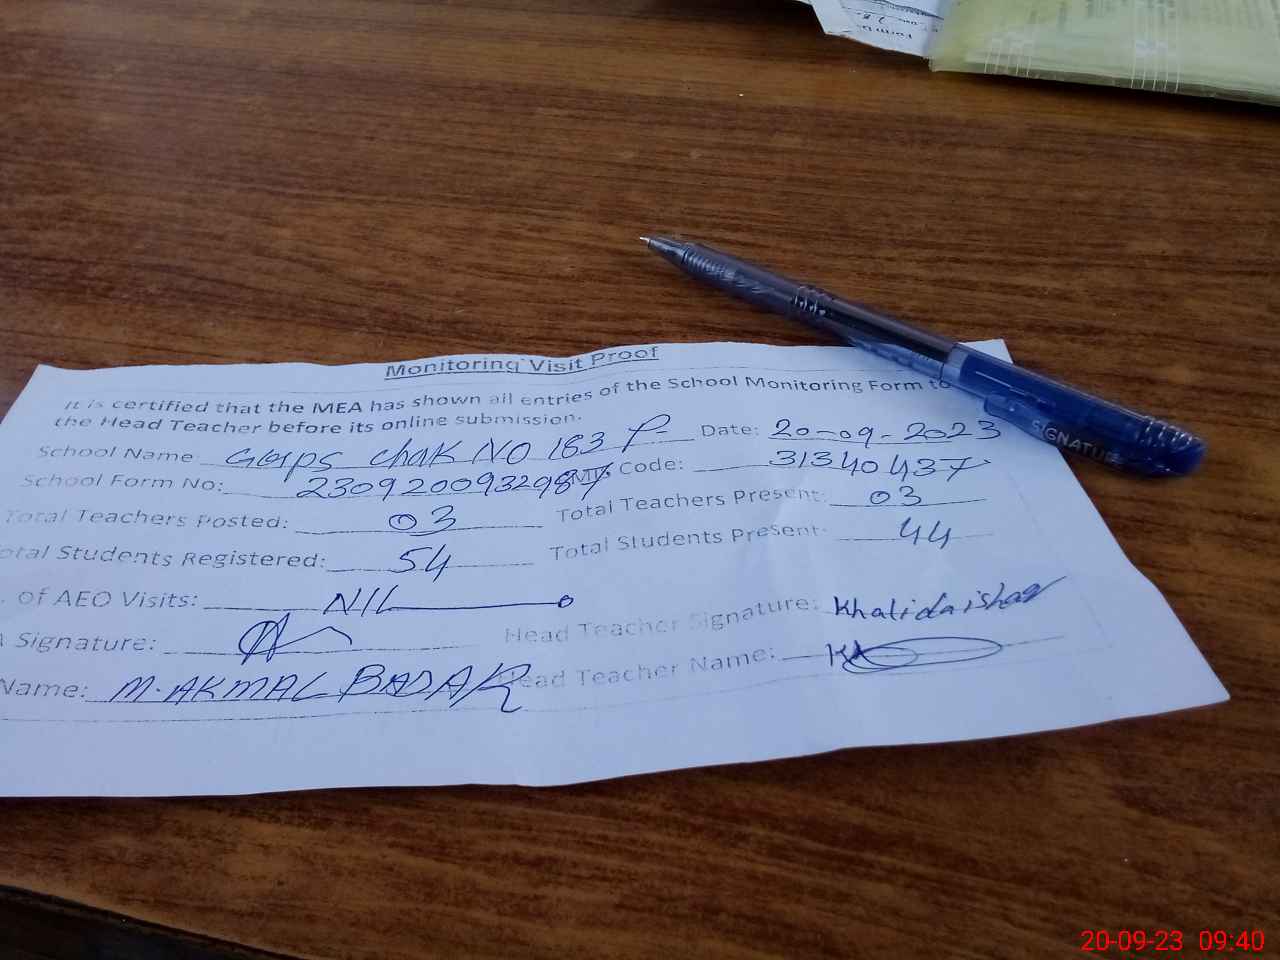 Monitoring Visit Proof
It is certified that the MEA has shown all entries of the School Monitoring Form to
the Head Teacher before its online submission.
School Name GGPS Chak NO 163 P Date: 20-09-2023
School Form No: 2309200932987 Code: 31340437
Total Teachers Posted: 03 Total Teachers Present: 03
otal Students Registered: 54 Total Students Present: 44
. of AEO Visits: NIL
A Signature: Head Teacher Signature: Khalida ishaq
Name: M. AKMAL Head Teacher Name:
SIGNATURE
20-09-23 09:40